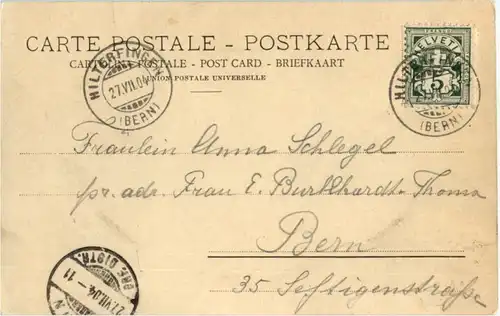 CARTE POSTALE - POSTKARTE
CARTE POSTALE - POST CARD - BRIEFKAART
UNION POSTALE UNIVERSELLE
HILTERFINGEN
27.VII.04
(BERN)
FRANCO
HELVETIA
5
HILTERFINGEN
(BERN)
Fräulein Anna Schlegel
pr. adr. Frau E. Burkhardt-Thoma
Bern
35 Seftigenstraße
27.VII.04.-11